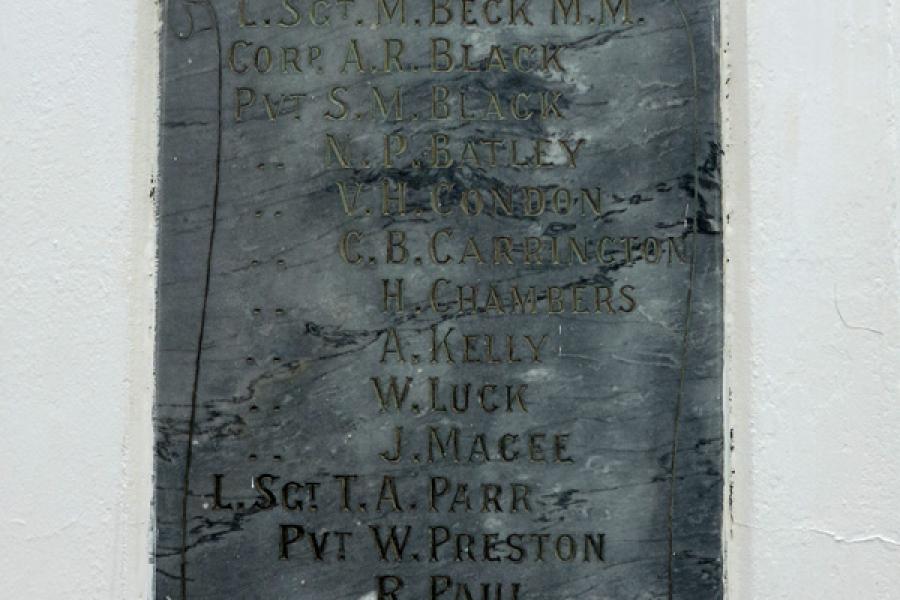 L. SGT. M. BECK M.M.
CORP. A.R. BLACK
PVT S.M. BLACK
.. N.P. BATLEY
.. V.H. CONDON
.. C.B. CARRINGTON
.. H. CHAMBERS
.. A. KELLY
.. W. LUCK
.. J. MAGEE
L. SGT T.A. PARR
PVT W. PRESTON
R. PAUL